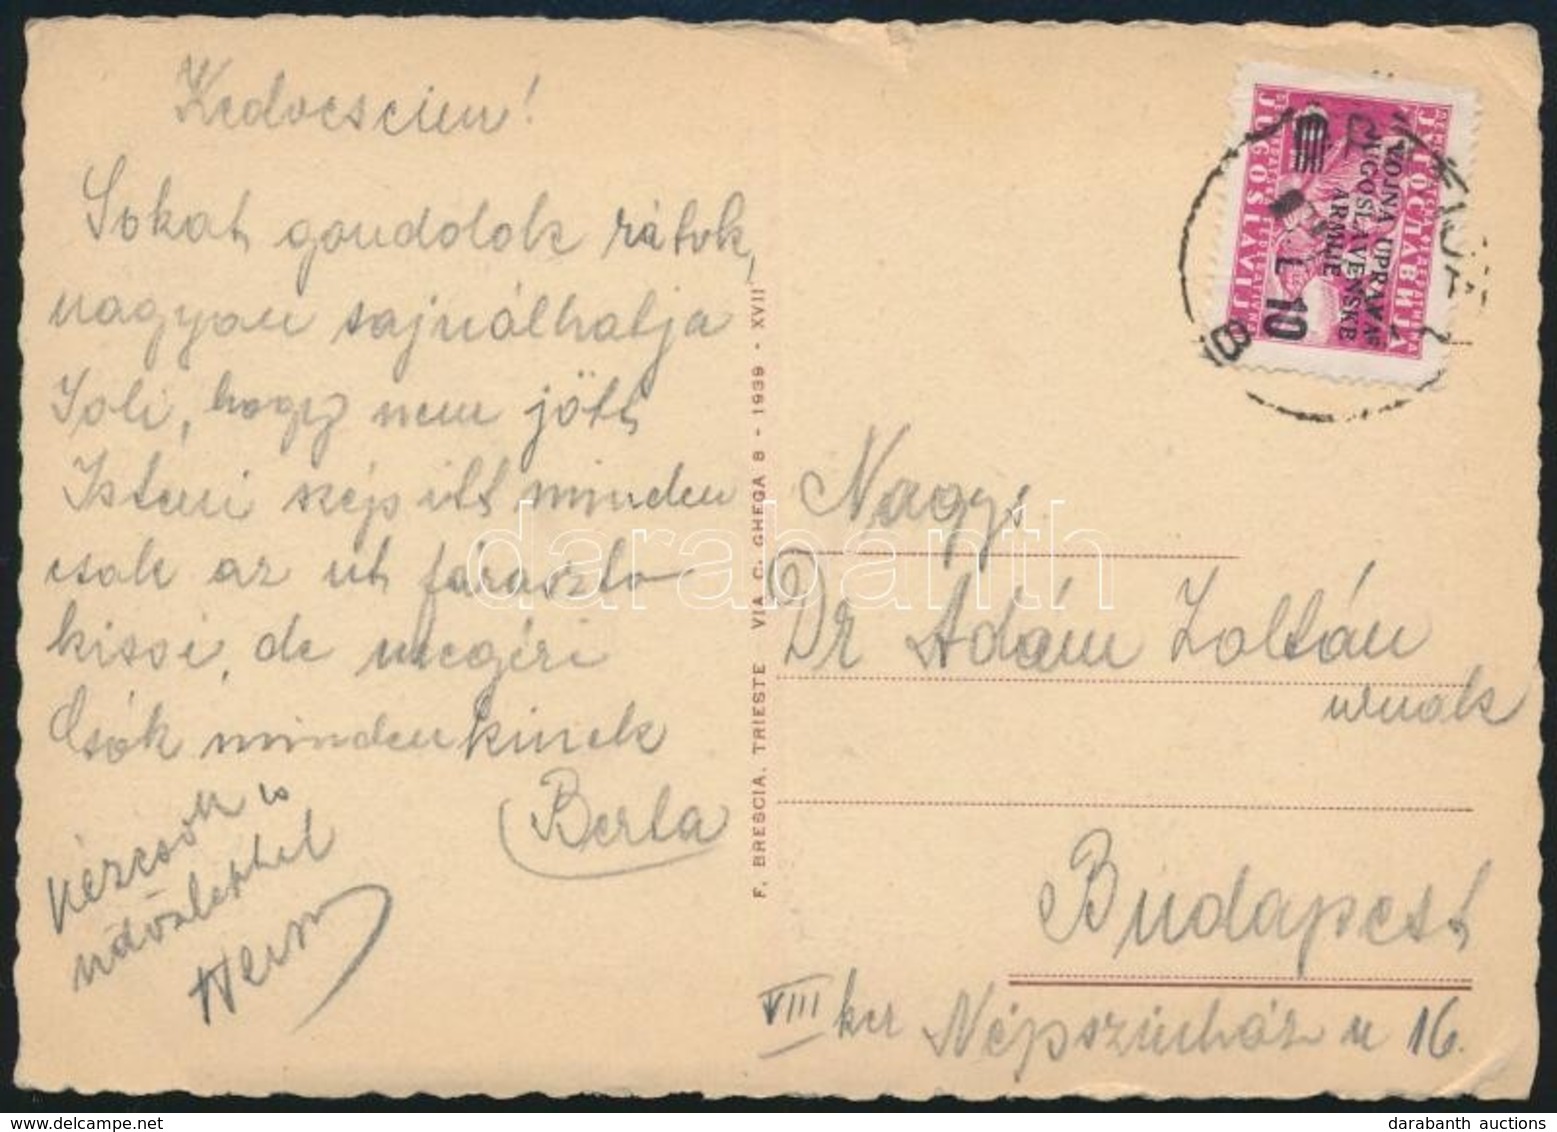 Kedveseim!
Sokat gondolok rátok,
nagyon sajnálhatja
Joli, hogy nem jött
Isteni szép itt minden
csak az út fárasztó
kissé, de megéri
Csók mindenkinek
Berta
kézcsók és
üdvözlettel
F. BRESCIA, TRIESTE VIA C. GHEGA 8 - 1939 - XVII
VOJNA UPRAVA
JUGOSLAVENSKE
ARMIJE
L 10
ЈУГОСЛАВИЈА
JUGOSLAVIJA
Nagys
Dr Ádám Zoltán
urnak
Budapest
VIII ker Népszinház u 16.
darabanth
darabanth auctions